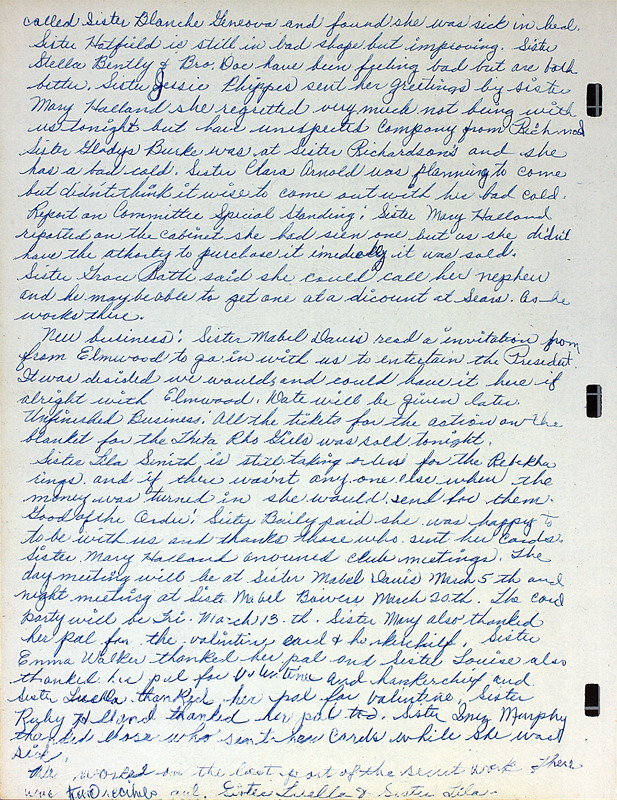 called Sister Blanche Geneova and found she was sick in bed.
Sister Hatfield is still in bad shape but improving. Sister
Stella Bently & Bro. Doc have been feeling bad but are both
better. Sister Jessie Phipps sent her greetings by sister
Mary Halland she regretted very much not being with
us tonight but have unexpected Company from Richmond
Sister Gladys Burke was at Sister Richardson's and she
has a bad cold. Sister Clara Arnold was planning to come
but didn't think it wise to come out with her bad cold.
Report on Committee Special Standing; Sister Mary Halland
reported on the cabinet she had seen one but as she didn't
have the athority to purchase it imediatly it was sold.
Sister Grace Batti said she could call her nephew
and he may be able to get one at a dicount at Sears. as he
works there.
New business; Sister Mabel Davis read a invitation from
from Elmwood to go in with us to entertain the President.
It was desided we would, and could have it here if
alright with Elmwood. Date will be given later
Unfinished Business; All the tickets for the action on the
blanket for the Theta Rho Girls was sold tonight.
Sister Lila Smith is still taking orders for the Rebekha
rings, and if there wasn't any one else when the
money was turned in she would send for them.
Good of the Order; Sister Baily said she was happy to
to be with us and thanks those who sent her cards.
Sister Mary Halland anounced club meetings. The
day meeting will be at Sister Mabel Davis March 5 th and
night meeting at Sister Mabel Bowers March 20th. The card
party will be Fri. March 13. th. Sister Mary also thanked
her pal for the valintine card & hankerchief. Sister
Emma Walker thanked her pal and Sister Louise also
thanked her pal for Valintine and hankerchief and
Sister Luella thanked her pal for valentine. Sister
Ruby Holland thanked her pal too. Sister Inez Murphy
thanked those who sent her cards while she was
sick.
We worked on the last part of the secret work & there
were two Sister Luella & Sister Lila.